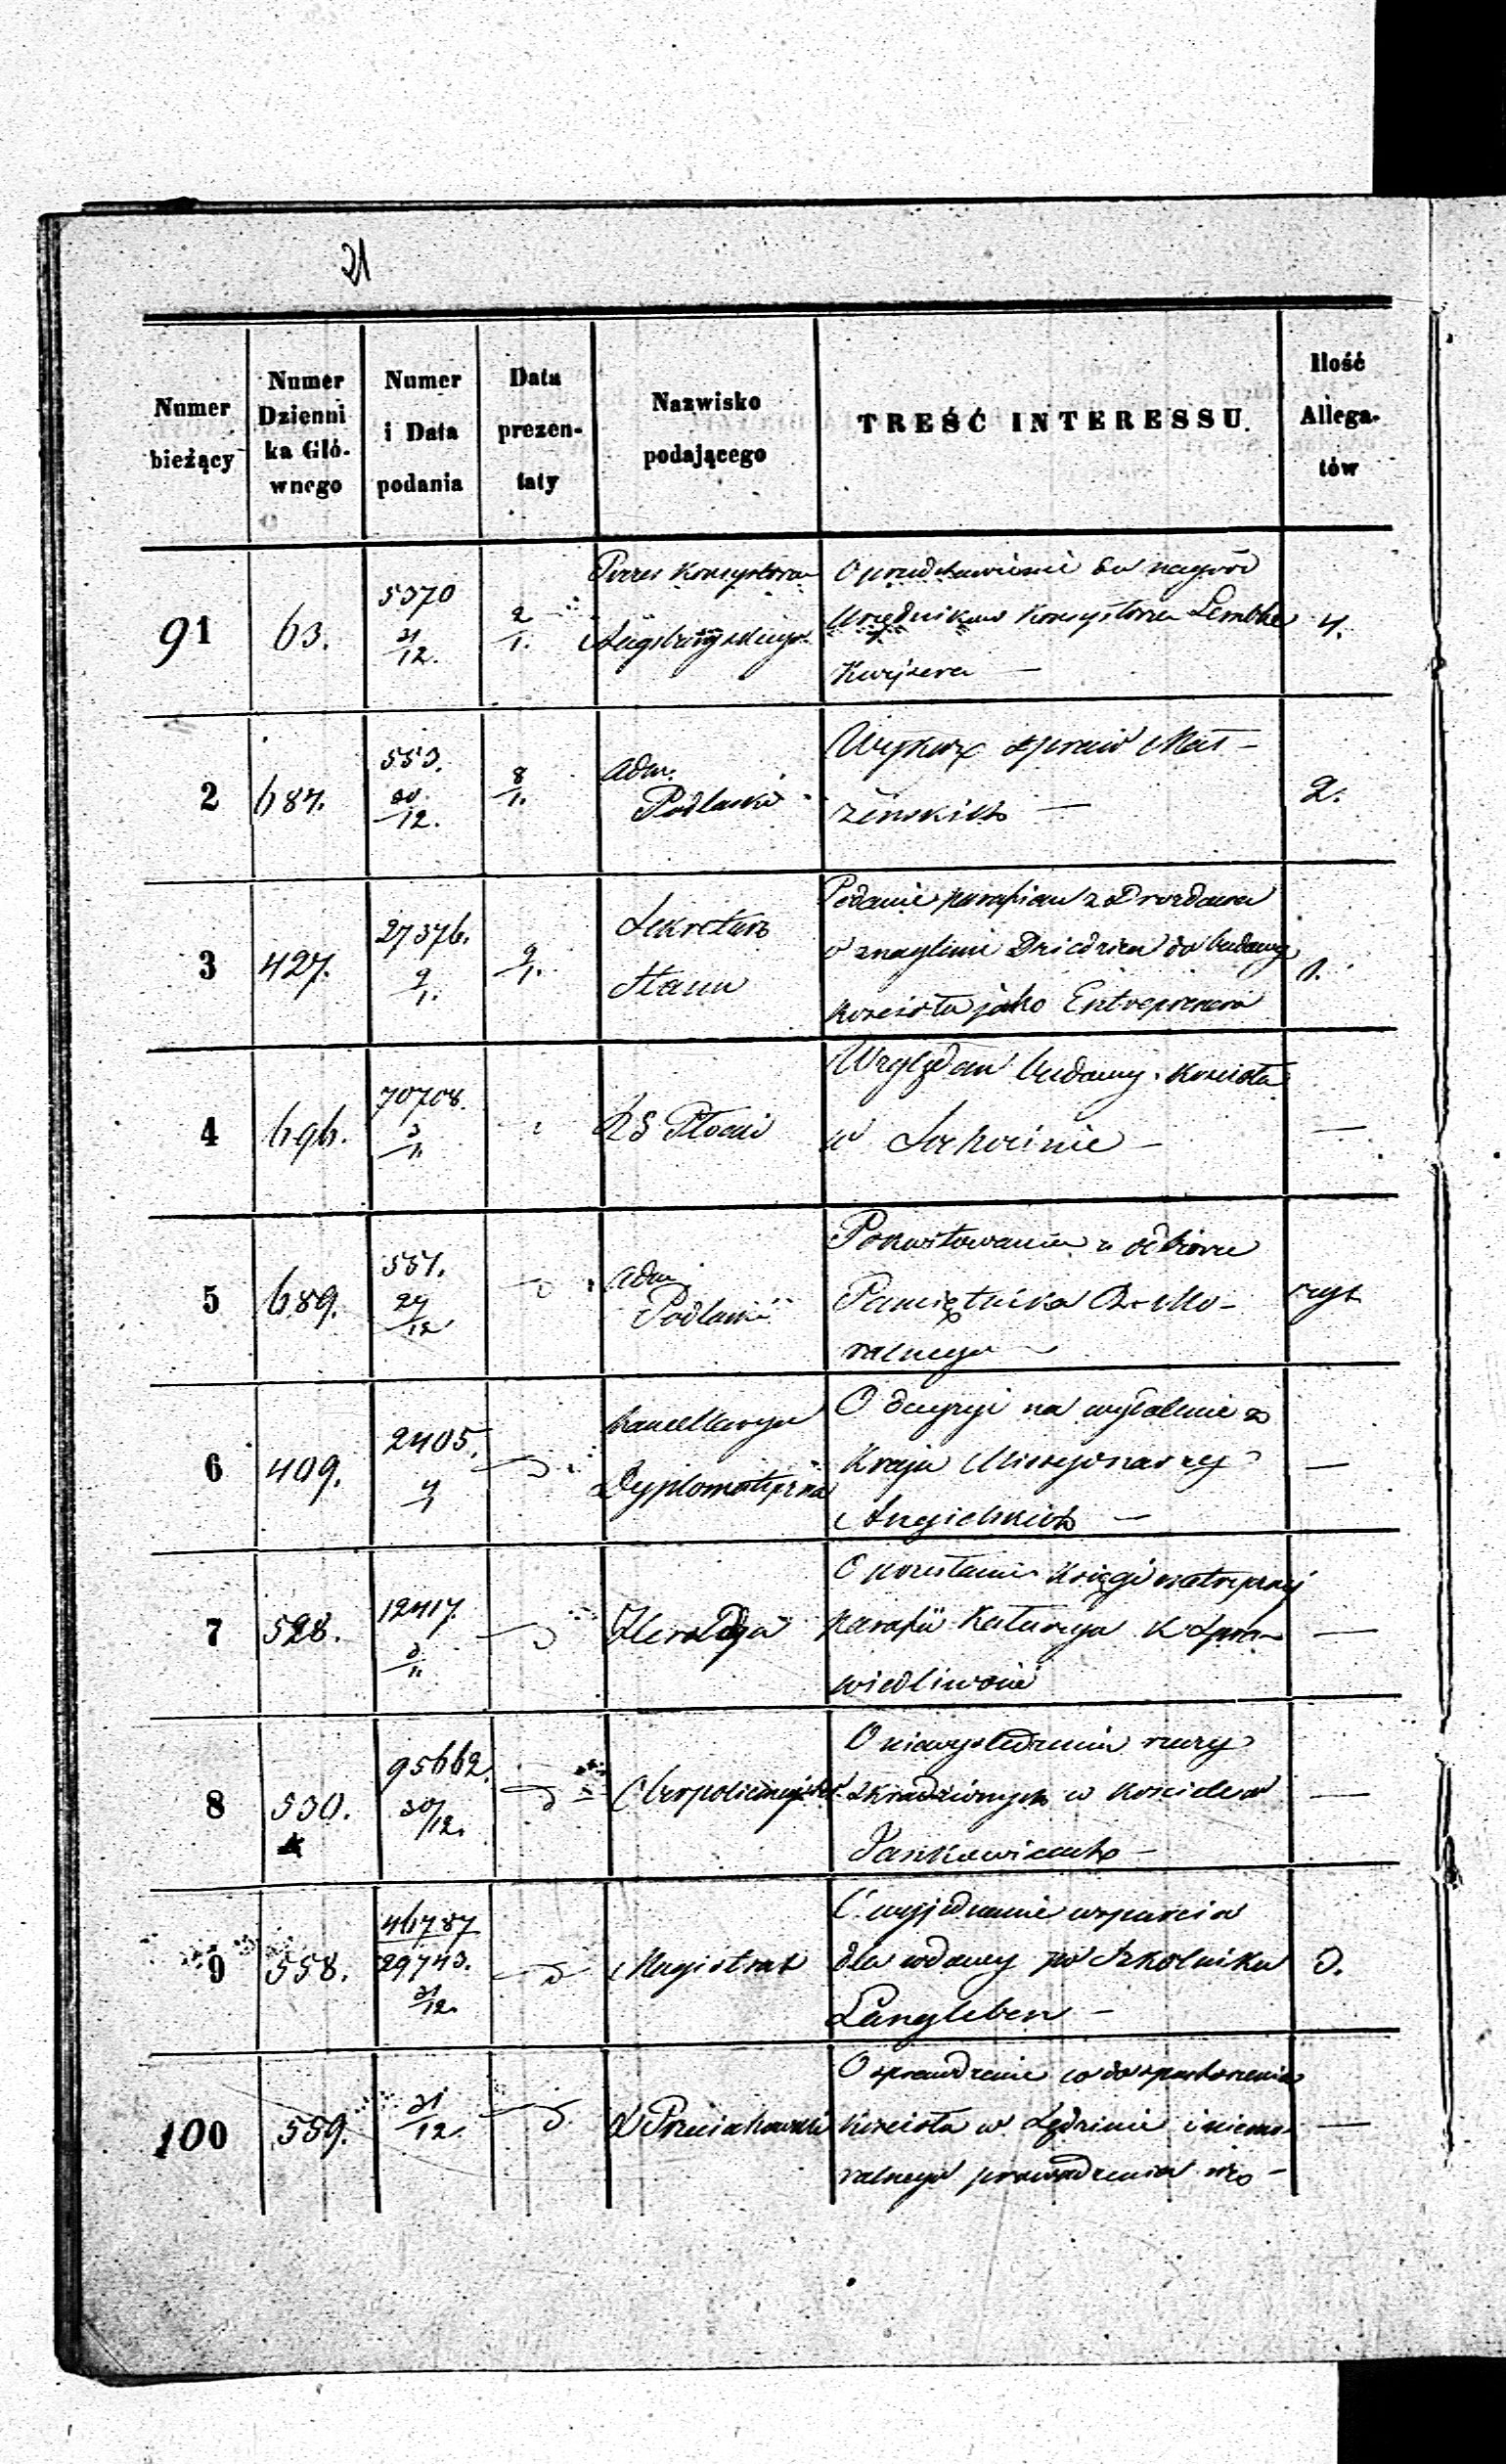 21
Numer
bieżący
Numer
Dzienni
ka Głó-
wnego
Numer
i Data
podania
Data
prezen-
taty
Nazwisko
podającego
TREŚĆ INTERESSU.
Ilość
Allega-
tów
91
63.
5370
31/12.
2/1.
Prezes Konsystorza
Augsburgskiego
O przedstawienie do nagród
Urzędników Konsystorza Lembke
4.
2
687.
553.
30/12.
8/1.
Adm.
Podlaski
Wykaz spraw Mał-
żeńskich —
2.
3
427.
27376.
9/1.
Sekretarz
Stanu
Podanie parafian z Drozdowa
o znaglenie Dziedzica do budowy
kościoła jako Entreprenera
1.
4
696.
70708.
3/1.
KS Płocki
Względem budowy kościoła
w Sochocinie —
—
5
689.
551.
29/12
Adm.
Podlaski
Pokwitowanie z odbioru
Pamiętnika R. Mo-
ralnego
6
409.
2405.
4/1
Kancellarya
Dyplomatyczna
O decyzyi na wydalenie z
Kraju Missyonarzy
Angielskich —
—
7
528.
12417.
3/1.
Heroldya
O przesłanie Księgi
parafii K Spra-
wiedliwości
—
8
530.
95662.
30/12.
Oberpolicmajster
O niewyśledzeniu rzeczy
skradzionych w kościele w
—
9
558.
46787
29743.
31/12.
Magistrat
O wyjednanie wsparcia
dla wdowy po Szkolniku
Langleben —
3.
100
559.
31/12.
X Przeciachowski
O sprawdzenie co do spustoszenia
kościoła w i niemo-
ralnego prowadzenia się —
—